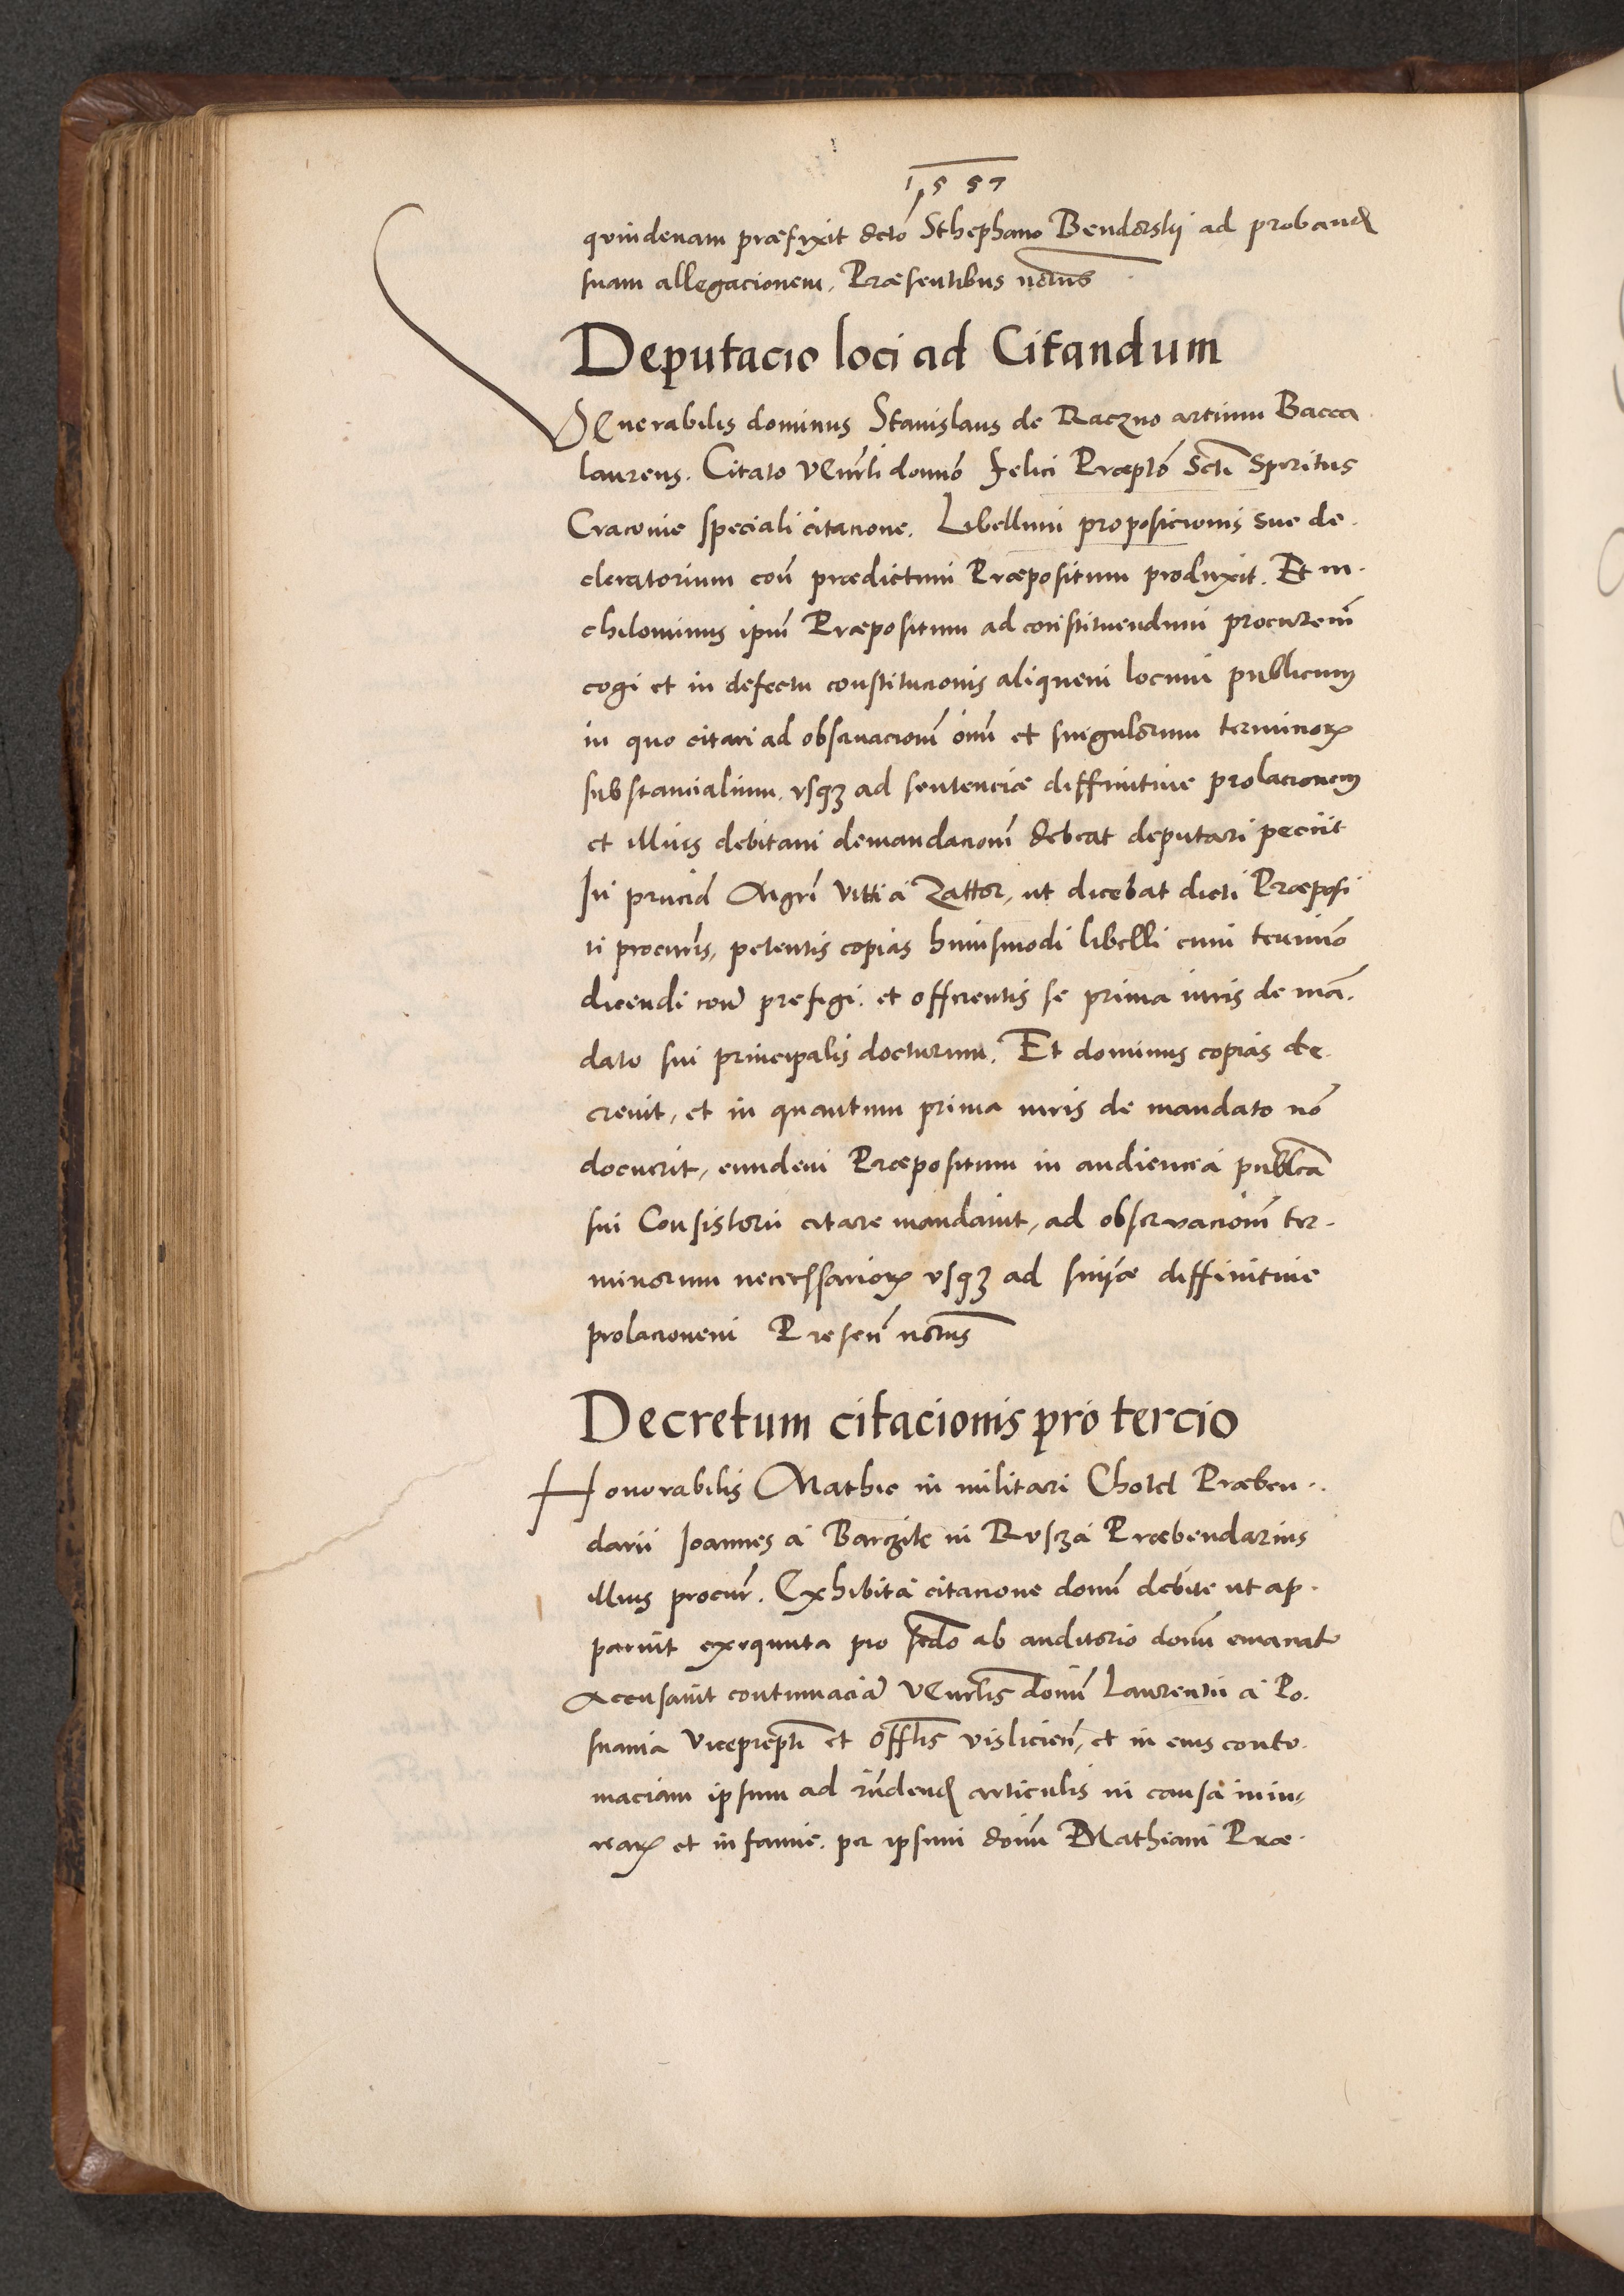 1557
quindenam præfixit dcto Sthephano Bendorskij ad proband
suam allegacionem. Præsentibus notus
Deputacio loci ad Citandum
VEnerabilis dominus Stanislaus de Raczno artium Bacca
laureus. Citato VEnrli domno Felici Præpto Scti Spiritus
Cracovie speciali citacione. Libellum proposicionis sue de.
claratorium con prædictum Præpositum produxit. Et ni.
chilominus ipm Præpositum ad constituendum procurem
cogi et in defectu constitucionis aliquem locum publicum
in quo citari ad obseruacionem oim et singulorum terminorꝝ
substancialium. vsqꝫ ad sentenciæ diffinitiue prolacionem
et illius debitam demandacionem debeat deputari peciit
In pncia Mgri Vitti a Zattor, ut dicebat dicti Præposi
ti procuris, petentis copias huiusmodi libelli cum termino
dicendi con prefigi. et offerentis se prima iuris de man.
dato sui principalis docturum. Et dominus copias de.
creuit, et in quantum prima iuris de mandato no
docuerit, eundem Præpositum in audiencia publca
sui Consistorii citare mandauit, ad obseruacionem ter.
minorum necessariorꝝ vsqꝫ ad sniæ diffinitiue
prolacionem Presen notus
Decretum citacionis pro tercio
Honorabilis Mathie in militari Chotel Præben..
darii Ioannes a Barczik in Rusza Præbendarius
illius procur. Exhibita citacione domi debite ut ap.
paruit exequuta pro scdo ab auditorio domi emanato
Accusauit contumacia VEnrlis domi Laurentii a Po.
snania Viceprepti et Offlis vislicien, et in eius contu.
maciam ipsum ad rndend articulis in causa iniu,
riarꝝ et infamie. per ipsum domi Mathiam Præ.